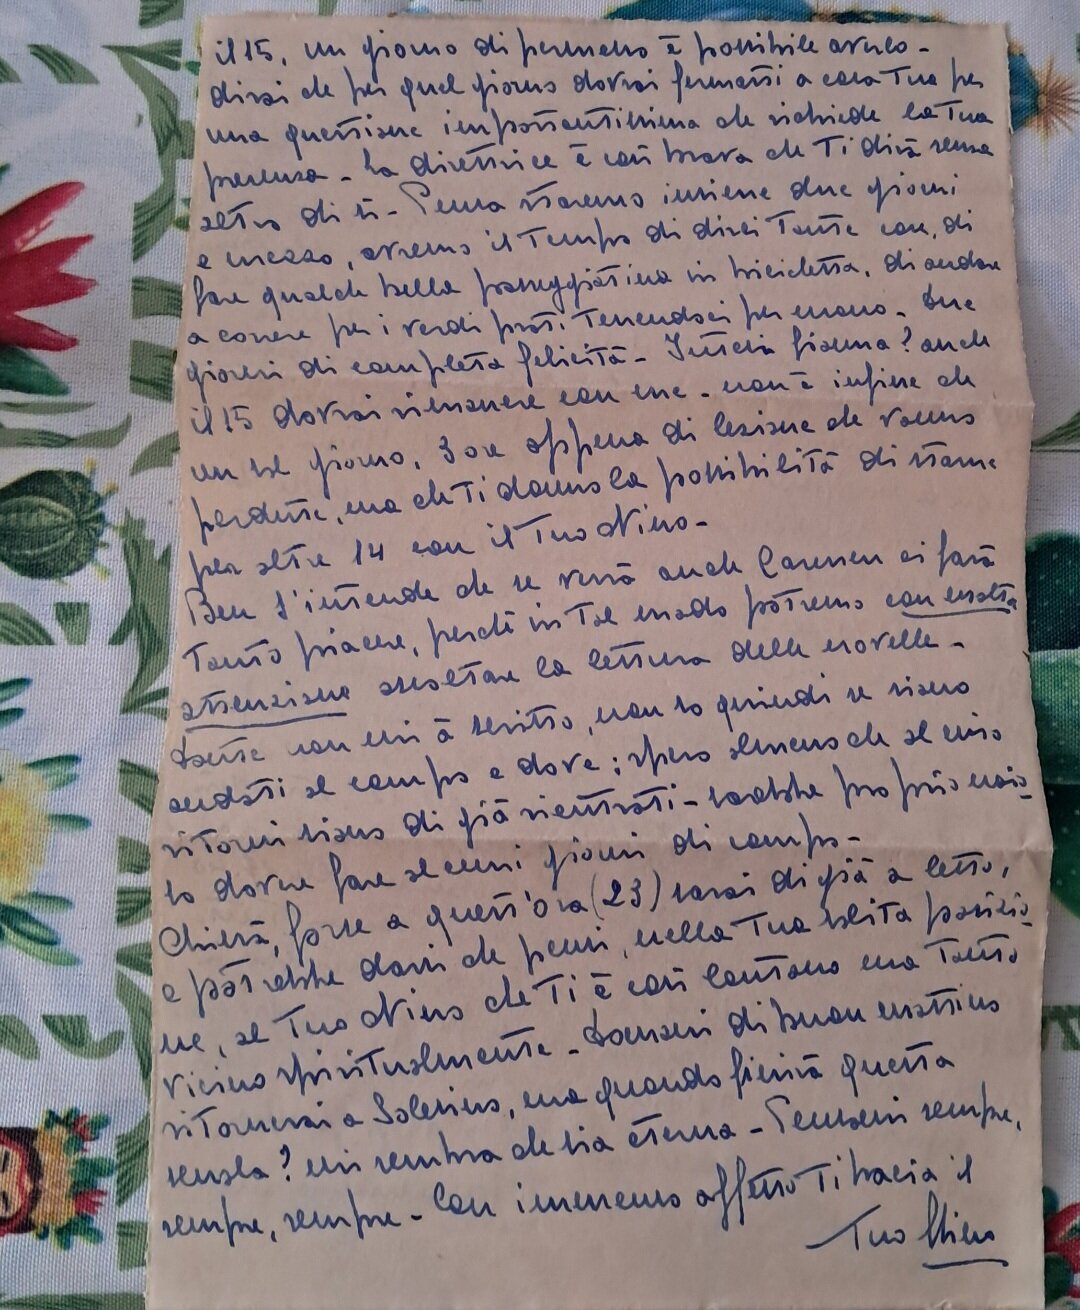 il 15, un giorno di permesso è possibile averlo -
dirai che per quel giorno dovrai fermarti a casa Tua per
una questione importantissima che richiede la Tua
presenza - La direttrice è così brava che Ti dirà senza
altro di sì - Pensa staremo insieme due giorni
e mezzo, avremo il Tempo di dirci Tante cose, di
fare qualche bella passeggiatina in bicicletta, di andare
a correre per i verdi prati Tenendoci per mano - Due
giorni di completa felicità - Intesia fiamma? anche
il 15 dovrai rimanere con me - non è infine che
un sol giorno, 3 ore appena di lezione che vanno
perdute, ma che Ti danno la possibilità di stare
per altre 14 con il Tuo Nino -
Ben s'intende che se verrà anche Carmen ci farà
Tanto piacere, perché in Tal modo potremo con molta
attenzione ascoltare la lettura delle novelle -
Dante non mi à scritto, non so quindi se siano
andati al campo e dove; spero almeno che al mio
ritorno siano di già rientrati - sarebbe proprio noio
so dover fare alcuni giorni di campo -
Chissà, forse a quest'ora (23) sarai di già a letto,
e potrebbe darsi che pensi, nella Tua solita posizio
ne, al Tuo Nino che Ti è così lontano ma Tanto
vicino spiritualmente - Domani di buon mattino
ritornerai a Solesino, ma quando finirà questa
scuola? mi sembra che sia eterna - Pensami sempre,
sempre, sempre - Con immenso affetto Ti bacia il
Tuo Nino